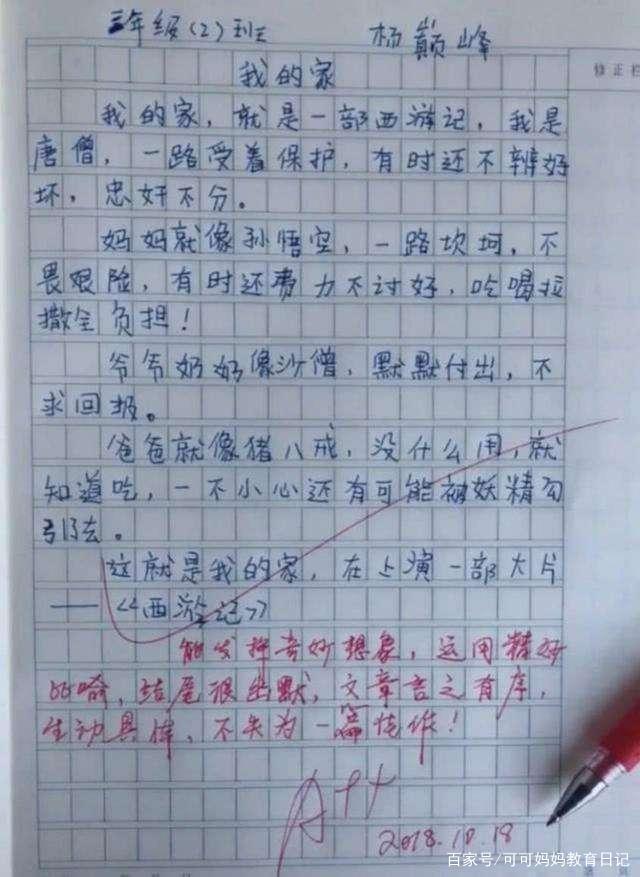 三年级(2)班 杨巅峰
我的家
修正栏
我的家，就是一部西游记，我是
唐僧，一路受着保护，有时还不辨好
坏，忠奸不分。
妈妈就像孙悟空，一路坎坷，不
畏艰险，有时还费力不讨好，吃喝拉
撒全负担！
爷爷奶奶像沙僧，默默付出，不
求回报。
爸爸就像猪八戒，没什么用，就
知道吃，一不小心还有可能被妖精勾
引去。
这就是我的家，在上演一部大片
——《西游记》
能发挥奇妙想象，运用精妙
比喻，结尾很幽默，文章言之有序，
生动具体，不失为一篇佳作！
A++
2018.10.18
百家号/可可妈妈教育日记